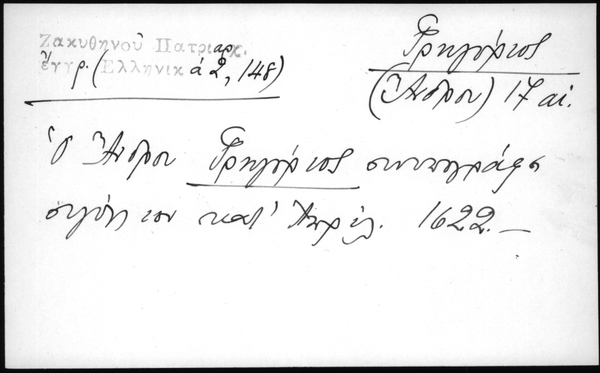 Ζακυθηνοῦ Πατριαρχ.
ἔγγρ. (Ἑλληνικά 2, 148)
Γρηγόριος
(Ἄνδρου) 17 αἰ.
ὁ Ἄνδρου Γρηγόριος συνυπογράφει
σιγίλ. του κατ' Ἀπρίλ. 1622.—